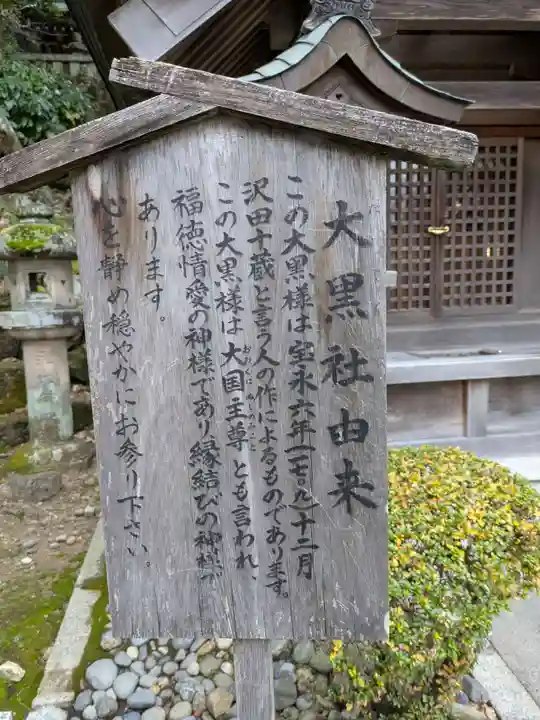 大黒社由来
この大黒様は宝永六年(一七〇九)十二月
沢田十蔵と言う人の作によるものであります。
この大黒様は大国主尊とも言われ、
福徳情愛の神様であり縁結びの神様で
あります。
心を静め穏やかにお参り下さい。